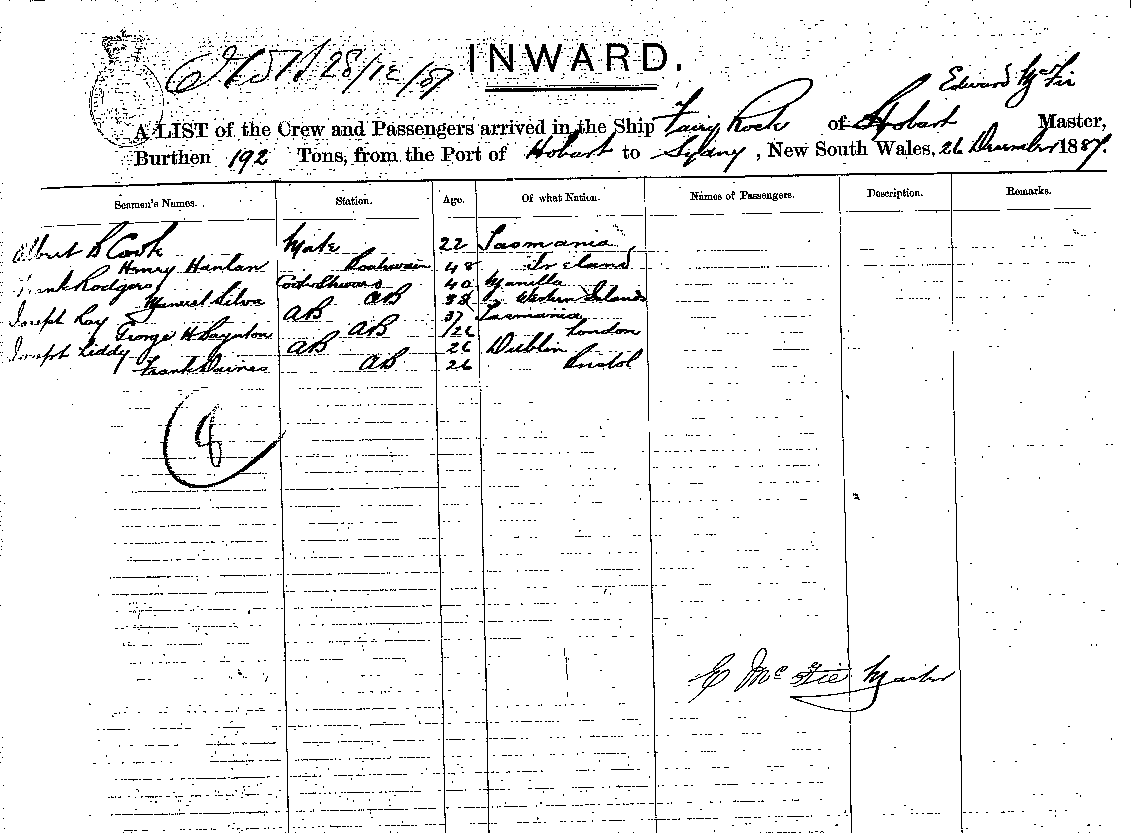 28/12/87 INWARD.
Edward McFie
A LIST of the Crew and Passengers arrived in the Ship Fairy Rock of Hobart Master,
Burthen 192 Tons, from the Port of Hobart to Sydney, New South Wales, 26 December 1887.
Seamen's Names. Station. Age. Of what Nation. Names of Passengers. Description. Remarks.
Albert B Cook Mate 22 Tasmania
Henry Hanlan Boatswain 48 Ireland
Frank Rodgers Cook & Steward 40 Manilla
Manuel Silva AB 38 Western Islands
Joseph Ray AB 37 Tasmania
George H Baynton AB 26 London
Joseph Liddy AB 26 Dublin
Frank Daines AB 26 Bristol
8
E McFie Master